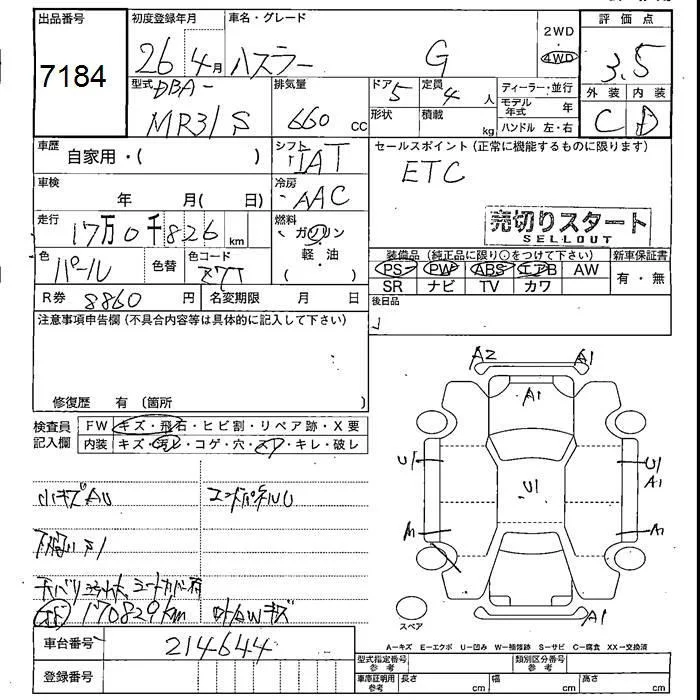 出品番号 7184
初度登録年月 26年 4月
車名・グレード ハスラー G
2WD
4WD
評価点 3.5
外装 内装
C D
型式 DBA-
MR31S
排気量 660 cc
ドア 5
形状
定員 4 人
積載 kg
ディーラー・並行
モデル年式 年
ハンドル 左・右
車歴 自家用・( )
シフト IAT
セールスポイント (正常に機能するものに限ります)
ETC
車検 年 月( 日)
冷房 AAC
走行 17万0千826 km
燃料 ガソリン
軽・油
( )
売切りスタート
SELLOUT
色 パール
色替
色コード Z7T
装備品 (純正品に限り○をつけて下さい)
新車保証書
PS PW ABS エアB AW
有・無
SR ナビ TV カワ
R券 8860 円
名変期限 月 日
後日品
注意事項申告欄 (不具合内容等は具体的に記入して下さい)
修復歴 有 (箇所 )
検査員記入欄
FW キズ・飛石・ヒビ割・リペア跡・X要
内装 キズ・汚レ・コゲ・穴・スレ・キレ・破レ
小キズAU エンドパネルU
シートカバー有
170829km
車台番号 214644
登録番号
A2 A1
A1
U1 U1 U1
A1
A1
A1
スペア
A－キズ E－エクボ U－凹み W－補修跡 S－サビ C－腐食 XX－交換済
型式指定番号 参考
類別区分番号 参考
車庫証明用 参考 長さ cm 幅 cm 高さ cm